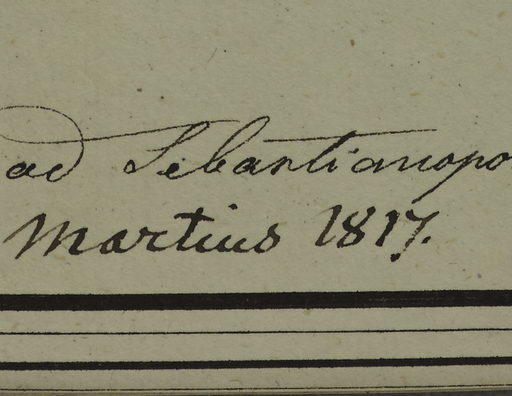 ad Sebastianopo
Martius 1817.